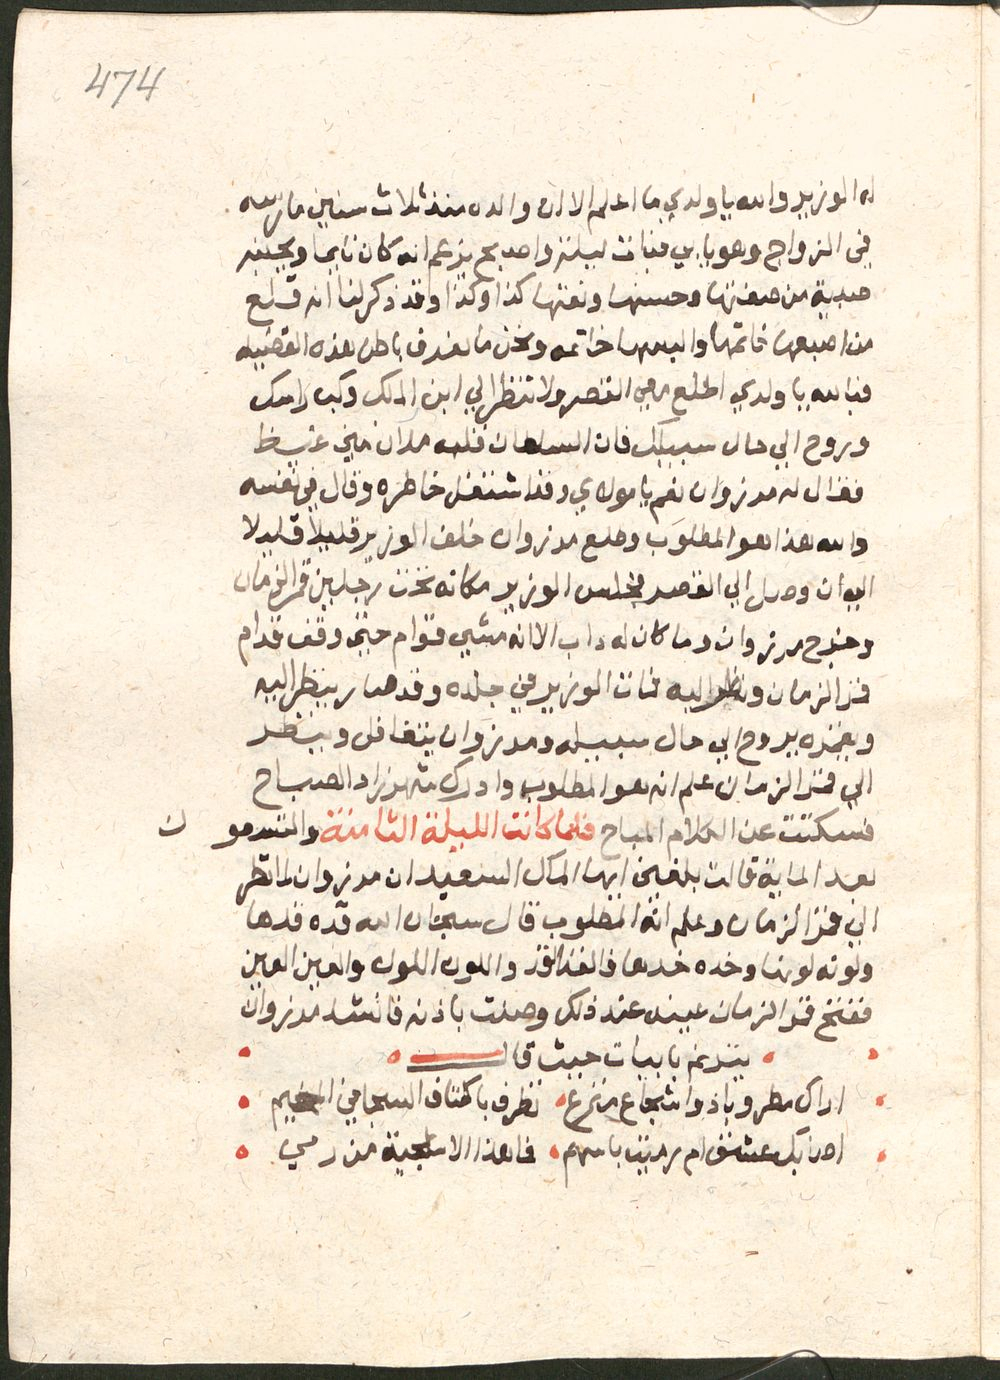 474
له الوزير والله يا ولدي ما اعلم الا ان والده منذ ثلاث سنين ما
في الزواج وهو يابي فبات ليلة واصبح يزعم انه كان نايما وبجنبه
صبية من صفتها وحسنها ونعتها كذا وكذا وقد ذكر لنا انه قلع
من اصبعها خاتمها والبسها خاتمه ونحن ما نعرف باطن هذه القضيه
فبالله يا ولدي اطلع معي القصر ولا تنظر الي ابن الملك وكب راسك
وروح الي حال سبيلك فان السلطان قلبه ملان مني غيظ
فقال له مرزوان نعم يا مولاي وقد اشتغل خاطره وقال في نفسه
والله هذا هو المطلوب وطلع مرزوان خلف الوزير قليلا قليلا
الي ان وصل الي القصر فجلس الوزير مكانه تحت رجلين قمر الزمان
وجرح مرزوان وما كان له داب الا انه مشي قوام حتي وقف قدام
قمر الزمان ونظر اليه فمات الوزير في جلده وقد صار ينظر اليه
ويغمزه يروح الي حال سبيله ومرزوان يتغافل وينظر
الي قمر الزمان علم انه هو المطلوب وادرك شهرزاد الصباح
فسكتت عن الكلام المباح فلما كانت الليلة الثامنة والتسعون
بعد الماية قالت بلغني ايها الملك السعيد ان مرزوان لما نظر
الي قمر الزمان وعلم انه المطلوب قال سبحان الله قده قدها
ولونه لونها وخده خدها فالقد القد واللون اللون والعين العين
ففتح قمر الزمان عينه عند ذلك وصنت باذنه فانشد مرزوان
يترنم بابيات حيث قال
اراك مطروبا ذو اشجاع مترع تطرف باكتاف السجامي المخيم
اصابك عشق ام رميت باسهم فما هذا الا سجية من رمي